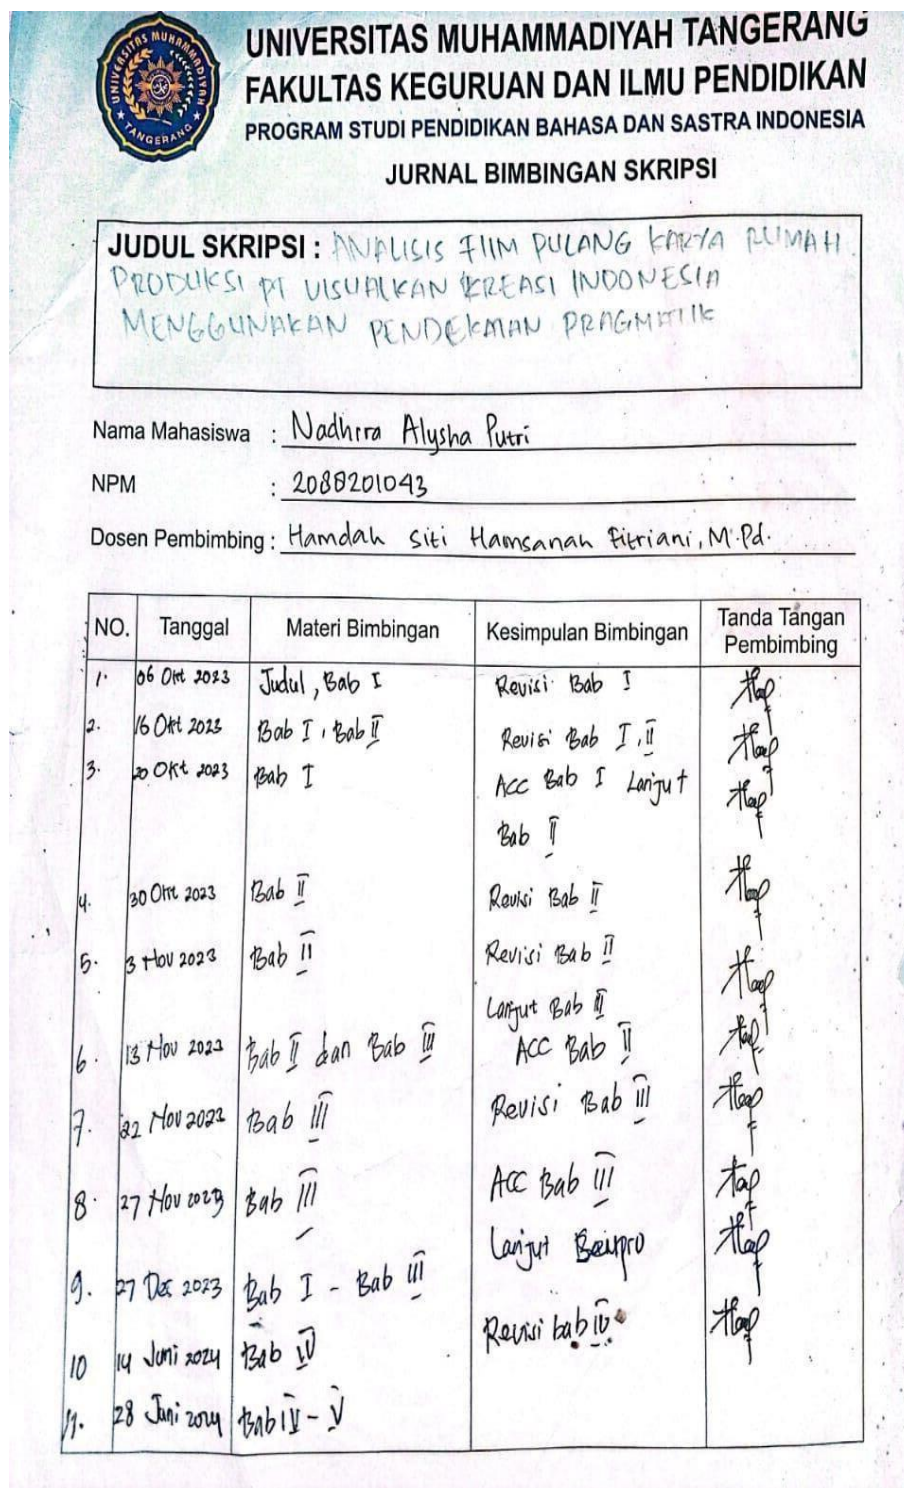 UNIVERSITAS MUHAMMADIYAH TANGERANG
FAKULTAS KEGURUAN DAN ILMU PENDIDIKAN
PROGRAM STUDI PENDIDIKAN BAHASA DAN SASTRA INDONESIA
JURNAL BIMBINGAN SKRIPSI
UNIVERSITAS MUHAMMADIYAH
TANGERANG
JUDUL SKRIPSI : ANALISIS FIIM PULANG KARYA RUMAH
PRODUKSI PT VISUALKAN KREASI INDONESIA
MENGGUNAKAN PENDEKATAN PRAGMATIIK
Nama Mahasiswa : Nadhira Alysha Putri
NPM : 2088201043
Dosen Pembimbing : Hamdah Siti Hamsanah Fitriani, M.Pd.
NO. Tanggal Materi Bimbingan Kesimpulan Bimbingan Tanda Tangan Pembimbing
1. 06 Okt 2023 Judul, Bab I Revisi Bab I
2. 16 Okt 2023 Bab I, Bab II Revisi Bab I, II
3. 20 Okt 2023 Bab I ACC Bab I Lanjut
Bab II
4. 30 Okt 2023 Bab II Revisi Bab II
5. 3 Nov 2023 Bab II Revisi Bab II
Lanjut Bab III
6. 13 Nov 2023 Bab II dan Bab III ACC Bab II
7. 22 Nov 2023 Bab III Revisi Bab III
8. 27 Nov 2023 Bab III ACC Bab III
Lanjut
9. 27 Dec 2023 Bab I - Bab III
Revisi bab IV
10 14 Juni 2024 Bab IV
11. 28 Juni 2024 Bab IV - V